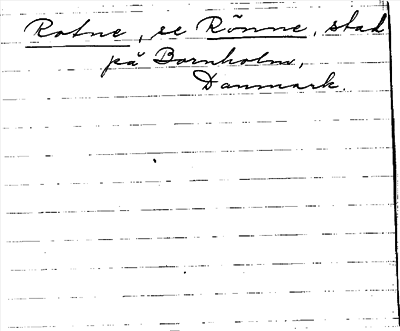 Rotne, se Rönne, stad
på Bornholm,
Danmark.